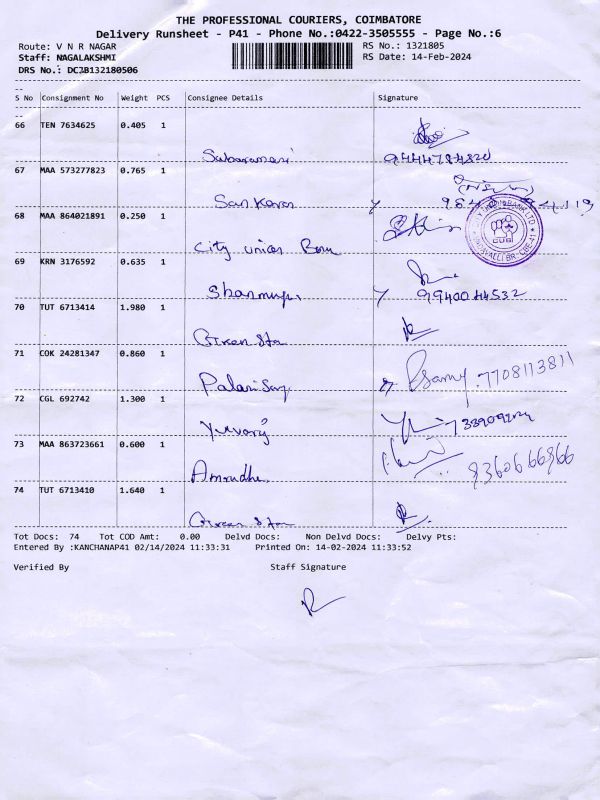 THE PROFESSIONAL COURIERS, COIMBATORE
Delivery Runsheet - P41 - Phone No.:0422-3505555 - Page No.:6
Route: V N R NAGAR RS No.: 1321805
Staff: NAGALAKSHMI RS Date: 14-Feb-2024
DRS No.: DCJB132180506
--
S No Consignment No Weight PCS Consignee Details Signature
--
66 TEN 7634625 0.405 1
9444784820
67 MAA 573277823 0.765 1
Sankaran
68 MAA 864021891 0.250 1
City union Bank
69 KRN 3176592 0.635 1
9940044532
70 TUT 6713414 1.980 1
Green Star
71 COK 24281347 0.860 1
Palanisamy Psamy 7708113811
72 CGL 692742 1.300 1
Yuvaraj
73 MAA 863723661 0.600 1
Amrudha 9360666866
74 TUT 6713410 1.640 1
Green Star
Tot Docs: 74 Tot COD Amt: 0.00 Delvd Docs: Non Delvd Docs: Delvy Pts:
Entered By :KANCHANAP41 02/14/2024 11:33:31 Printed On: 14-02-2024 11:33:52
Verified By Staff Signature